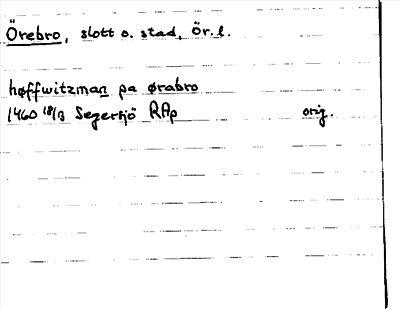 Örebro, slott o. stad, Ör. l.
høffwitzman pa ørabro
1460 18/3 Segersjö RAp orig.